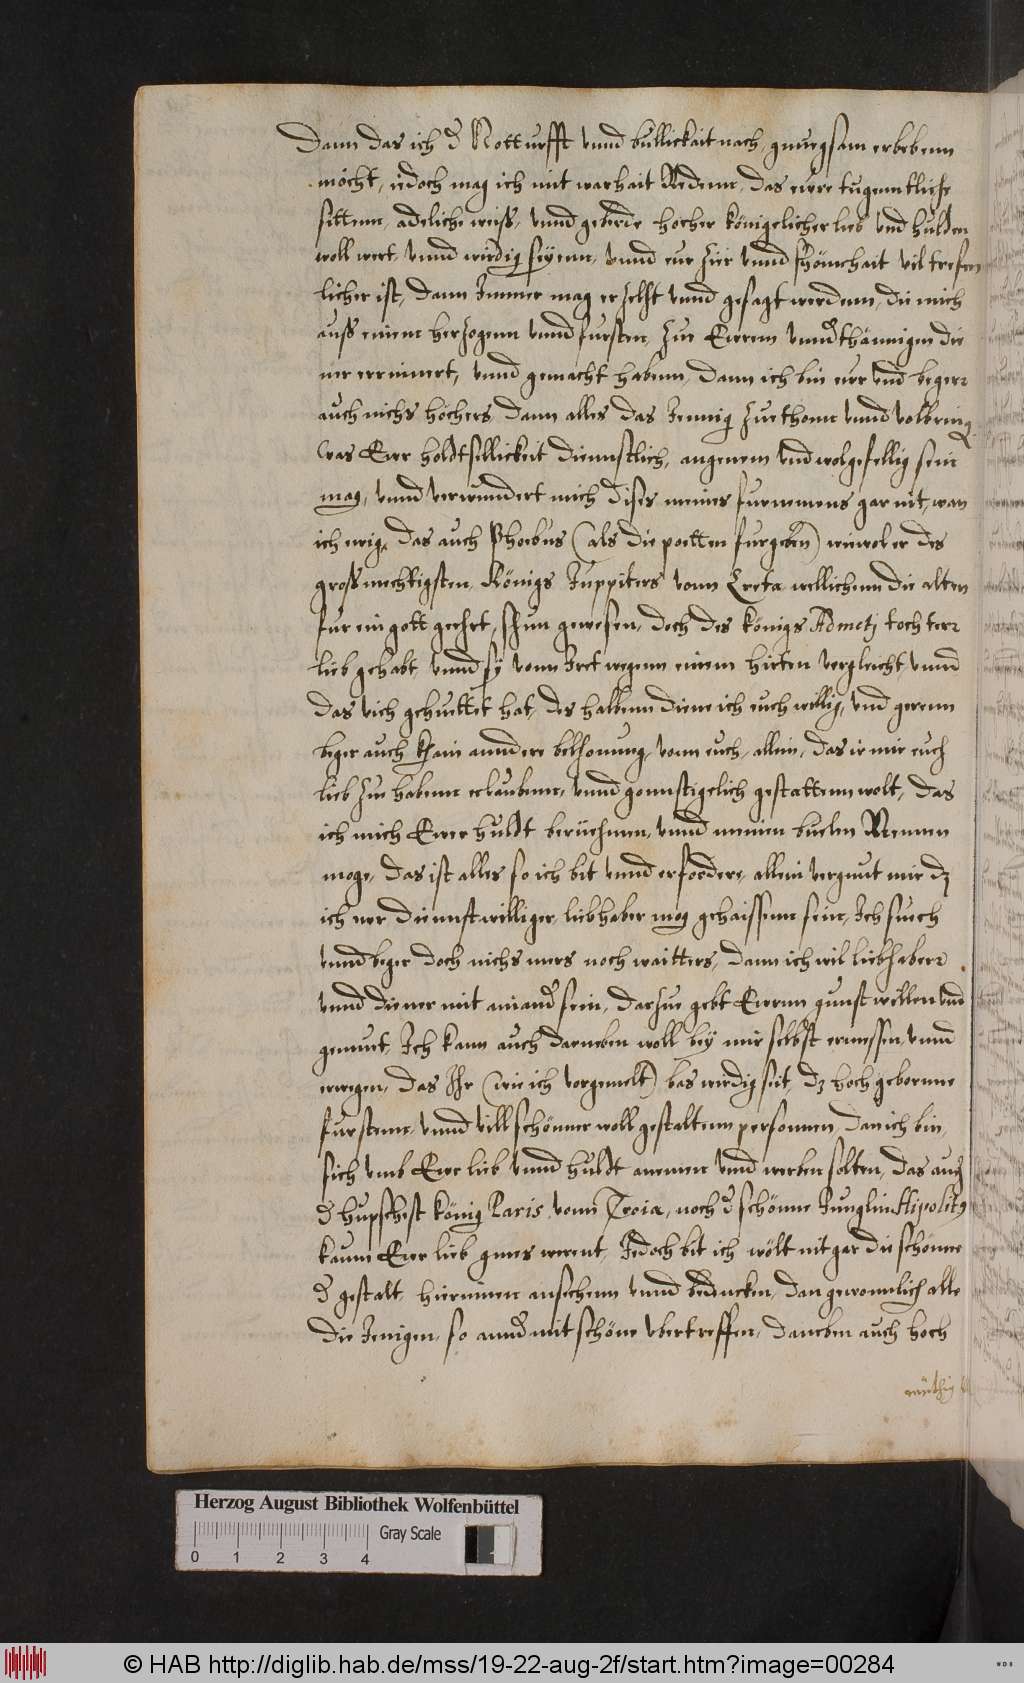 Dann das ich d Notturfft vnnd bullickait nach, gnuegsam erhebenn
möcht, iedoch mag ich mit warhait Redenn, das eure tugenntliche
sittenn, adeliche weiß, vnnd geberde hocher königelicher lieb vnd hulden
woll wert, vnnd wirdig seyenn, vnnd eur Zier vnnd schönnhait vil treffen
licher ist, dann Immer mag erzelht vnnd gesagt werdenn, die mich
auß einem herzogenn vnnd fursten, zue Eurem vnnd thännigen die
ner erinnert, vnnd gemacht habenn, dann ich bin eur vnd beger
auch nichs höchers dann alles das Jennig zue thonn vnnd volbring
Was Eur holdtsellickeit diennstlich, angenem vnd wolgefellig sein
mag, vnnd verwundert mich dises meines furnemens gar nit, wan
ich erwig, das auch Phoebus (als die poetten furgeben) wiewol er des
großmechtigsten Königs Juppiters vonn Creta wellichenn die alten
fur ein gott geehrt, shun gewesen, doch des königs Admetj tochter
lieb gehabt vnnd sy vonn Iret wegenn einem hirten vergleicht, vnnd
das vich gehuettet hat, des halbenn diene ich euch willig, vnd gerenn
beger auch khain anndere belhonung, vonn euch, allein, das ir mir euch
lieb zue habenn erlaubenn, vnnd gonnstigelich gestattenn wolt, das
ich mich Eurer huldt berüehmen, vnnd meinen buelen Nennen
moge, das ist alles so ich bit vnnd erfordere, allein vergunt mir dz
ich eur diennstwilliger liebhaber mög gehaissenn sein, Ich suech
vnnd beger doch nichs mers noch waitters, dann ich wil liebhaber
vnnd diener mit ainand sein, darzue gebt Eurenn gunst willen vnd
gemuet, Ich kann auch darneben woll bey mir selbst ermessen, vnnd
erwegen, das Ihr (wie ich vorgemelt) bas wirdig seit, dz hochgebornne
furstenn, vnnd vill schönner woll gestaltenn personnen, dan ich bin,
sich vmb Eur lieb vnnd huldt annemen vnnd werben solten, das auch
d hupschest könig Paris, vonn Troia, noch d schönne Jungling Hipolitus
kaum Eur lieb gnues werent, Jedoch bit ich wölt nit gar die schönne
d gestalt, hierinnen ansehenn vnnd bedencken, dan gewonnelich alle
die Jenigen, so annd mit schöne vbertreffen, daneben auch hoch
müthig
Herzog August Bibliothek Wolfenbüttel
Gray Scale
0 1 2 3 4
© HAB http://diglib.hab.de/mss/19-22-aug-2f/start.htm?image=00284